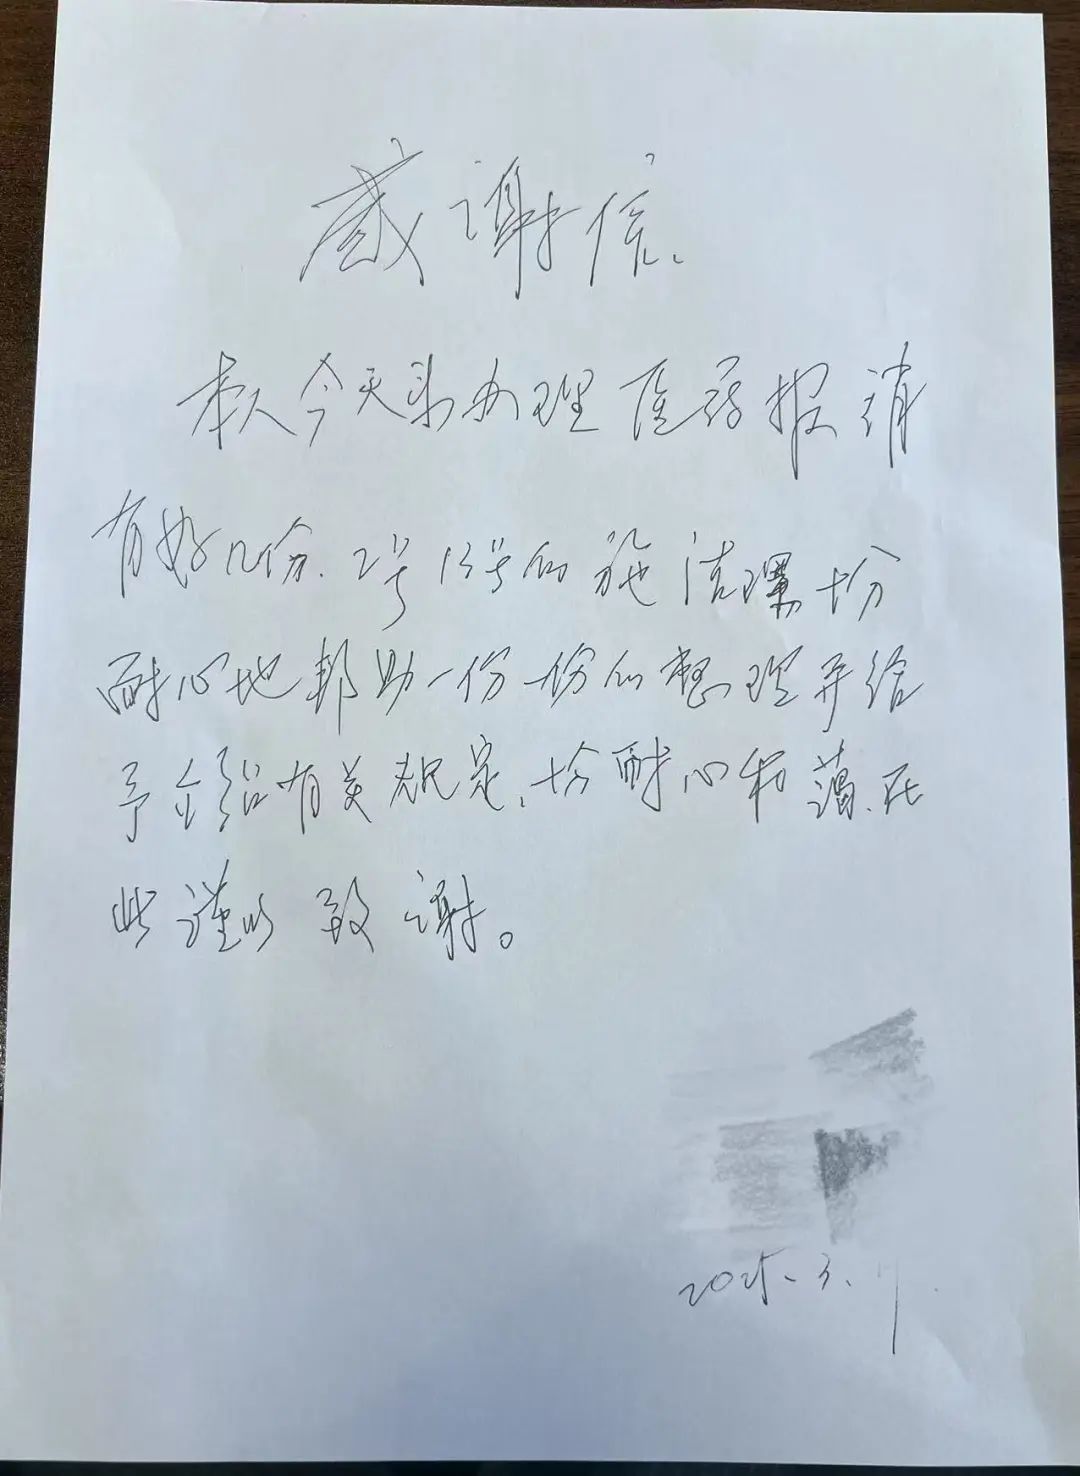 感谢信.
本人今天来办理医药报销
有好几份.2号13号的施洁琛十分
耐心地帮助一份一份的整理并给
予介绍有关规定,十分耐心和蔼.在
此谨以致谢。
2025.3.